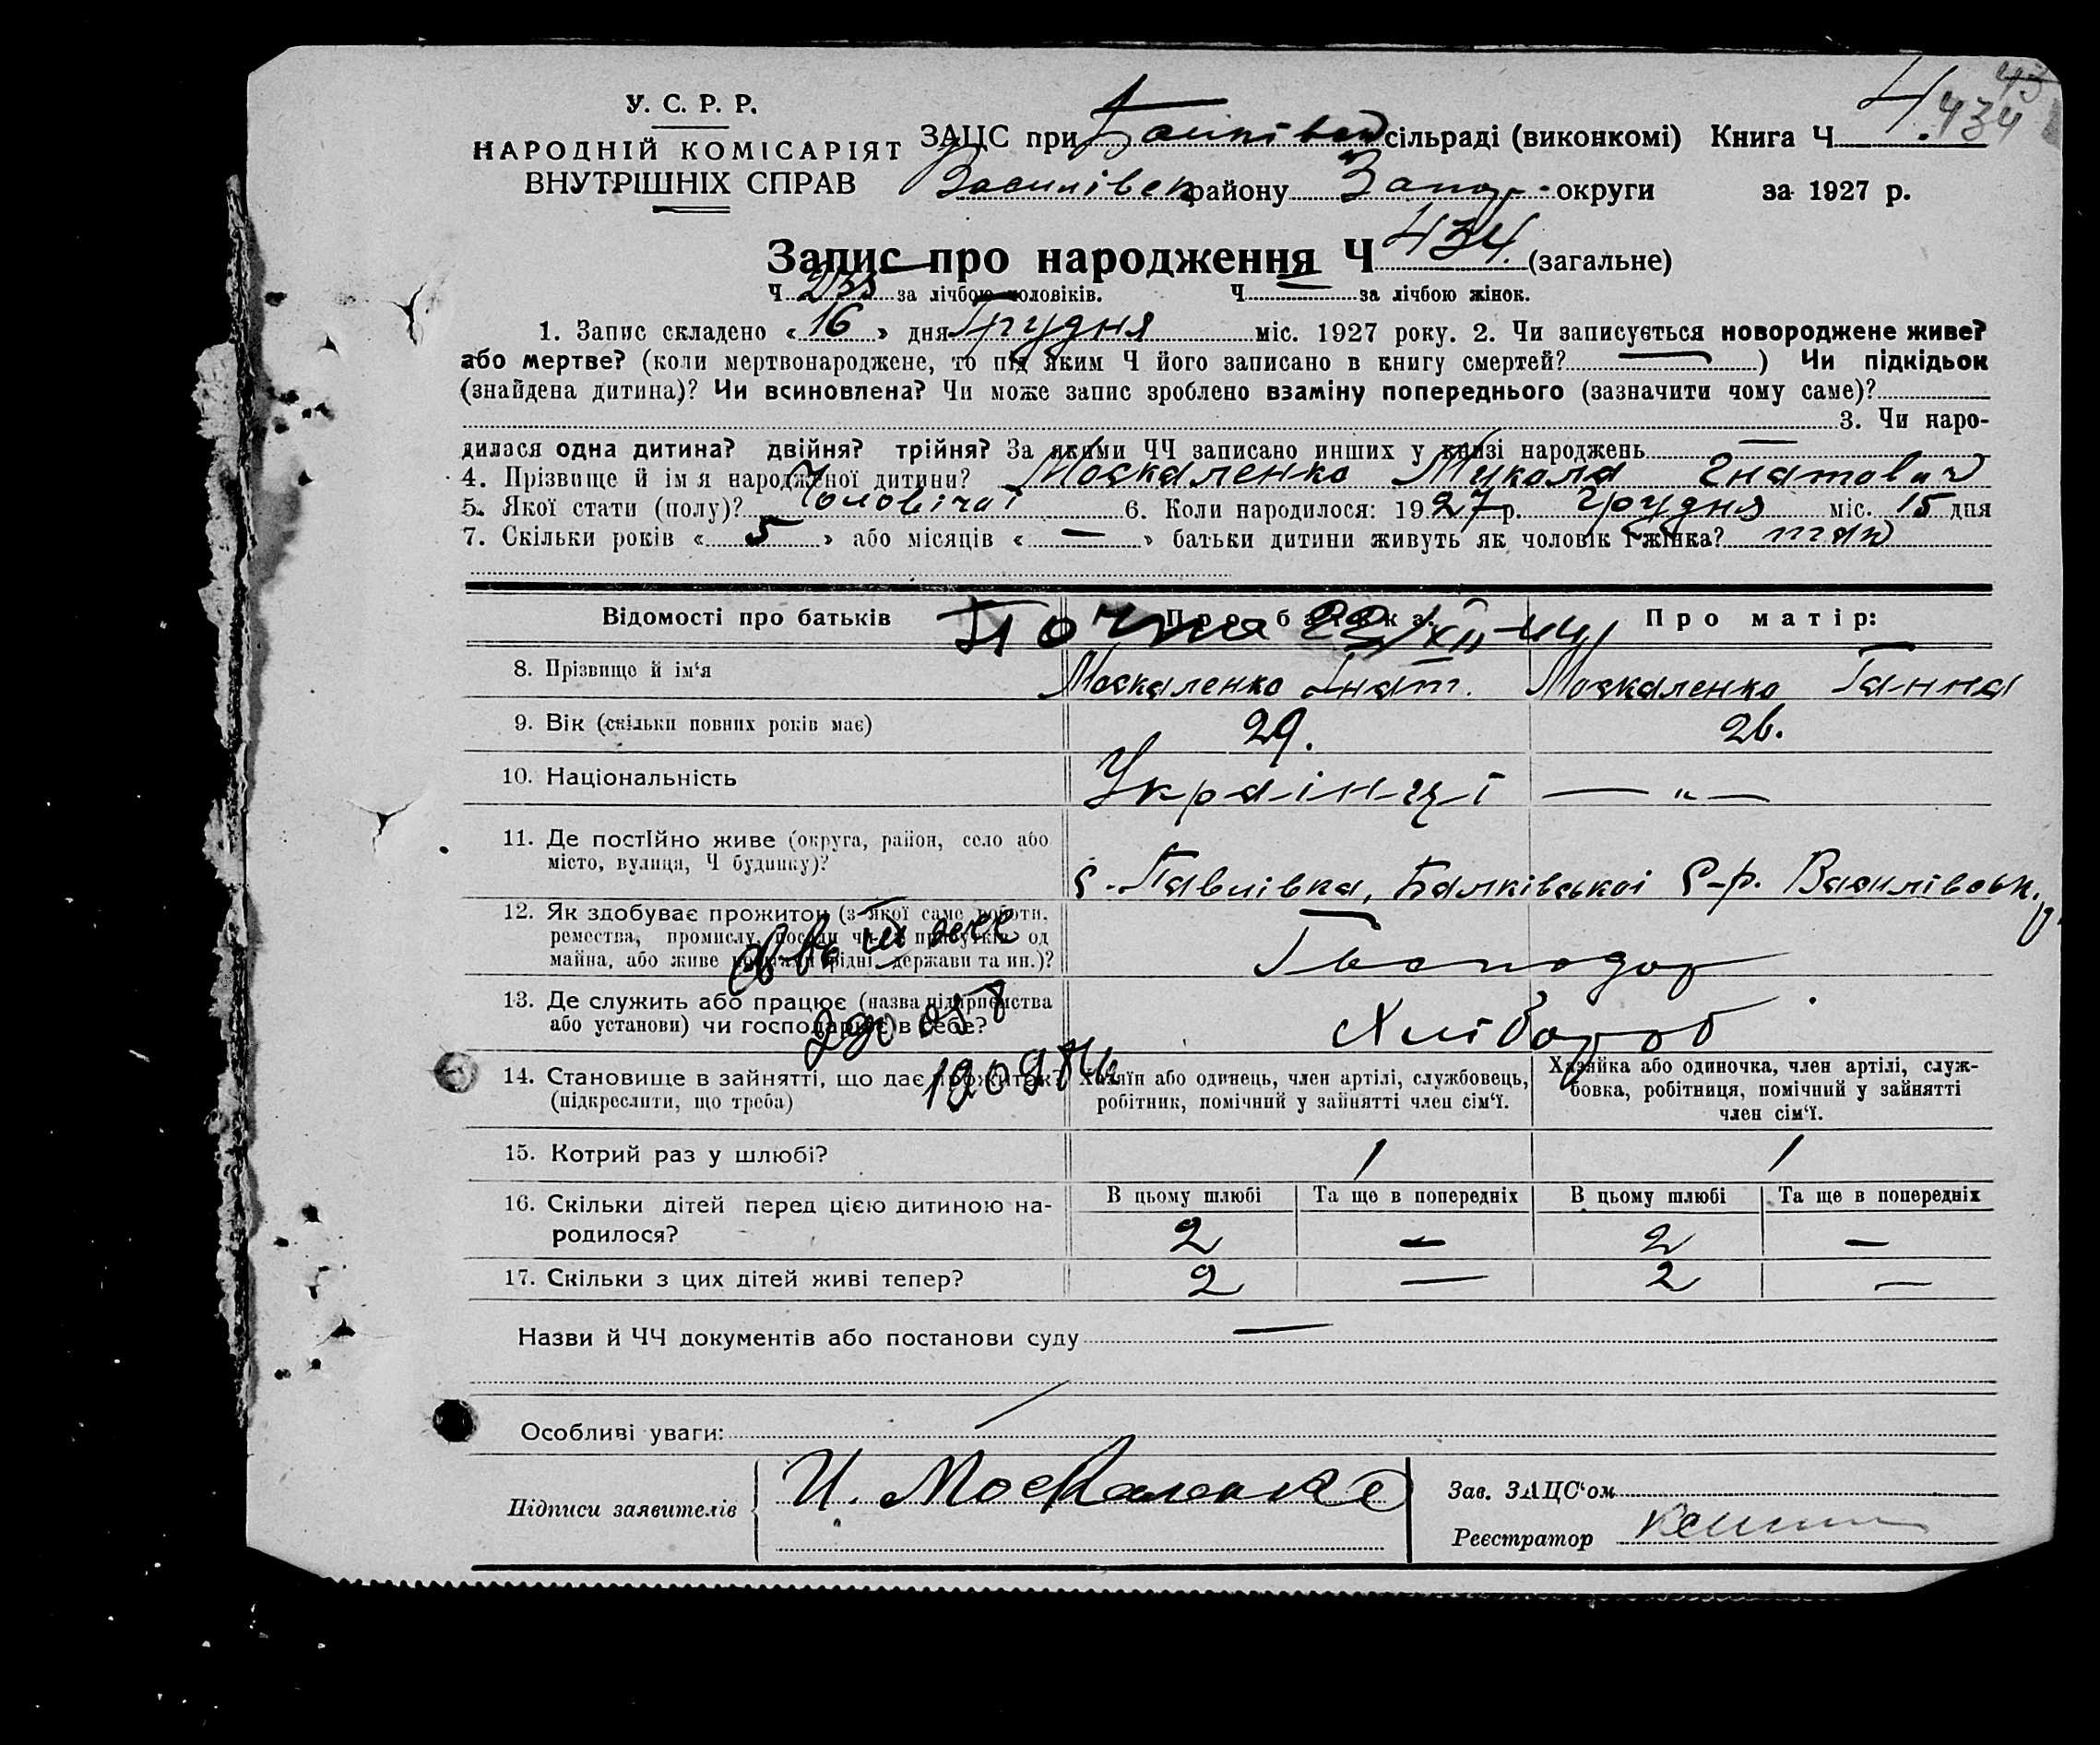 43
434
У. С. Р. Р.
НАРОДНІЙ КОМІСАРІЯТ
ВНУТРІШНІХ СПРАВ
ЗАЦС при Балківськ сільраді (виконкомі) Книга Ч 4.
Василівськ району Запор. округи за 1927 р.
Запис про народження Ч 434. (загальне)
Ч за лічбою чоловіків. Ч — за лічбою жінок.
1. Запис складено « 16 » дня Грудня міс. 1927 року. 2. Чи записується новороджене живе?
або мертве? (коли мертвонароджене, то під яким Ч його записано в книгу смертей? — ) Чи підкідьок
(знайдена дитина)? Чи всиновлена? Чи може запис зроблено взаміну попереднього (зазначити чому саме)?
3. Чи наро-
дилася одна дитина? двійня? трійня? За якими ЧЧ записано инших у книзі народжень —
4. Прізвище й ім я народженої дитини? Москаленко Микола Гнатович
5. Якої стати (полу)? Чоловічої 6. Коли народилося: 1927 р. Грудня міс. 15 дня
7. Скільки років « 5 » або місяців « — » батьки дитини живуть як чоловік і жінка? так
Відомості про батьків Про батька: Про матір:
8. Прізвище й ім‘я Москаленко Гнат. Москаленко Ганна
9. Вік (скільки повних років має) 29. 26.
10. Національність Українці — „ —
11. Де постійно живе (округа, район, село або
місто, вулиця, Ч будинку)?
с. Павлівка, Балківської С-р. Василівськ. р.
12. Як здобуває прожиток (з якої саме роботи,
ремества, промислу, посади чи з прибутків од
майна, або живе коштами рідні, держави та ин.)?
Господар
13. Де служить або працює (назва підприємства
або установи) чи господарює в себе?
Хлібороб
14. Становище в зайнятті, що дає прожиток?
(підкреслити, що треба)
Хазяїн або одинець, член артілі, службовець,
робітник, помічний у зайнятті член сім‘ї.
Хазяйка або одиночка, член артілі, служ-
бовка, робітниця, помічний у зайнятті
член сім‘ї.
15. Котрий раз у шлюбі? 1 1
16. Скільки дітей перед цією дитиною на-
родилося?
В цьому шлюбі Та ще в попередніх В цьому шлюбі Та ще в попередніх
2 — 2 —
17. Скільки з цих дітей живі тепер? 2 — 2 —
Назви й ЧЧ документів або постанови суду —
Особливі уваги:
Підписи заявителів И. Москаленко
Зав. ЗАЦС‘ом
Реєстратор